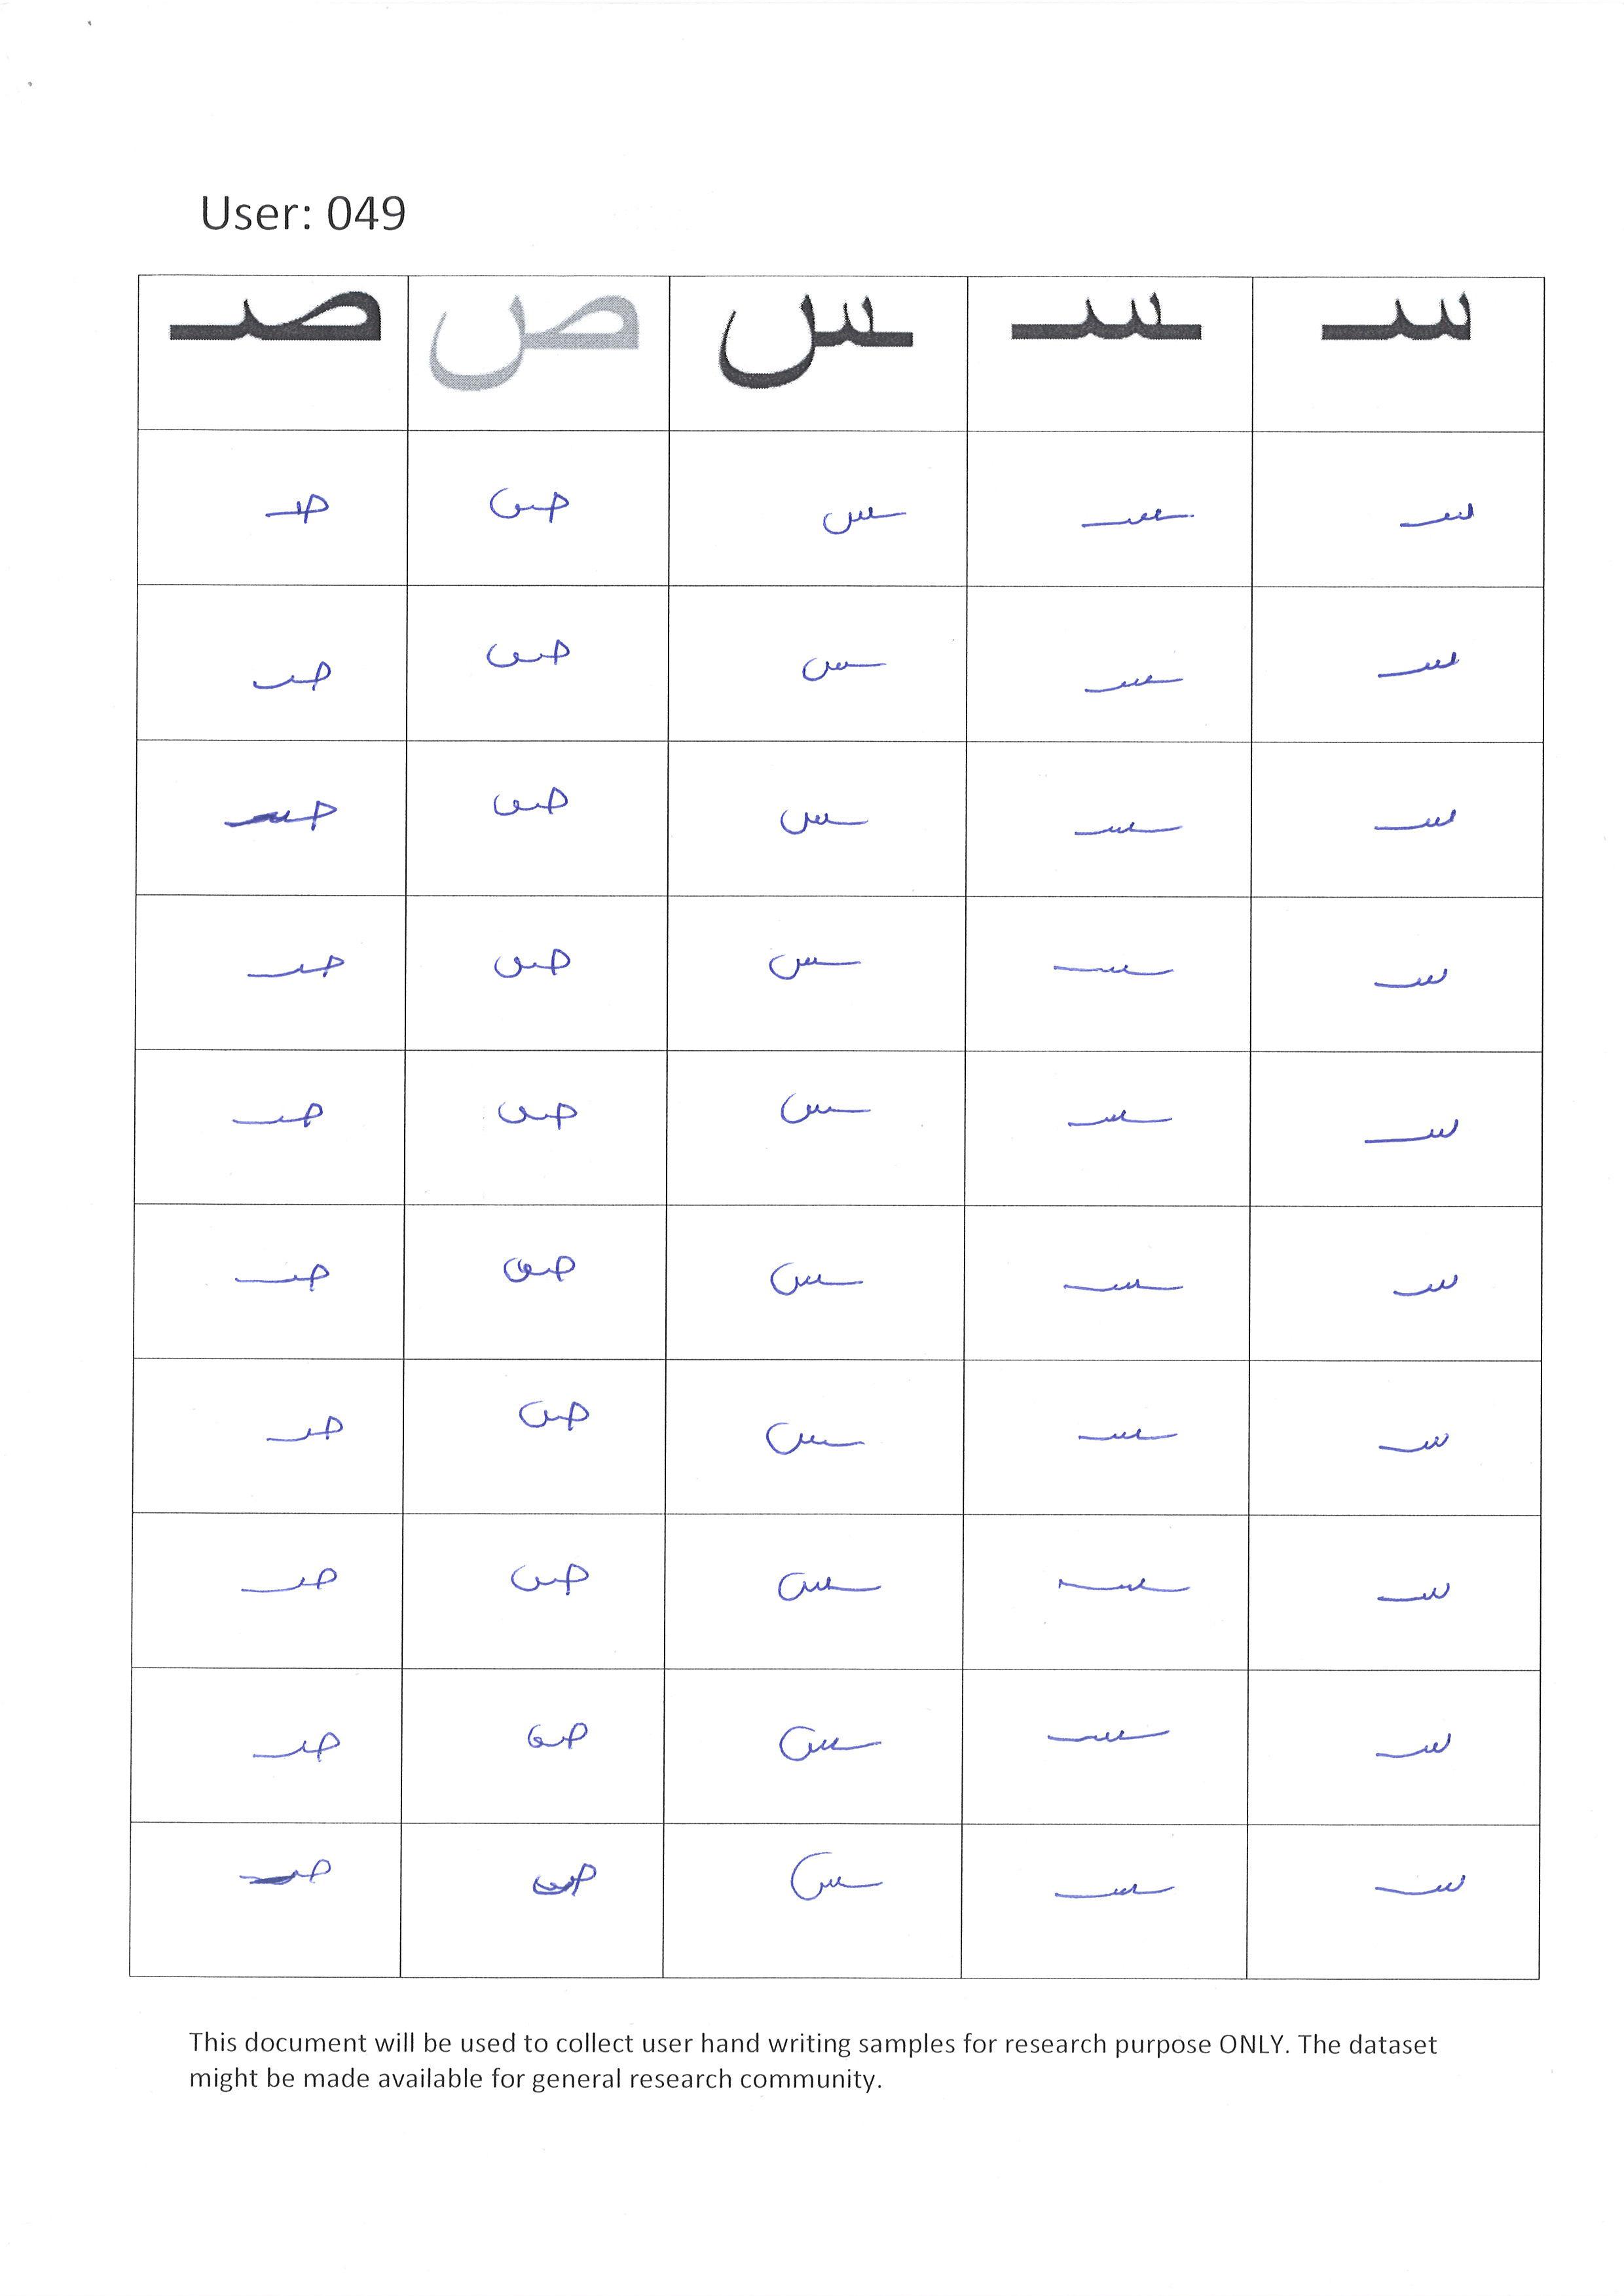 User: 049
سـ ـسـ ـس ص صـ
سـ ـسـ ـس ص صـ
سـ ـسـ ـس ص صـ
سـ ـسـ ـس ص صـ
سـ ـسـ ـس ص صـ
سـ ـسـ ـس ص صـ
سـ ـسـ ـس ص صـ
سـ ـسـ ـس ص صـ
سـ ـسـ ـس ص صـ
سـ ـسـ ـس ص صـ
سـ ـسـ ـس ص صـ
This document will be used to collect user hand writing samples for research purpose ONLY. The dataset
might be made available for general research community.